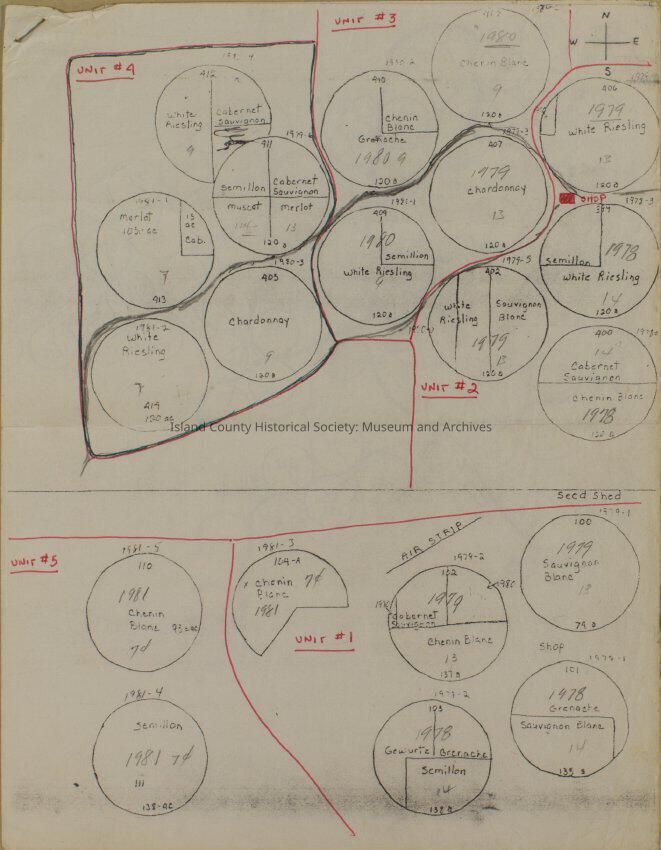 UNIT #3
N
W E
S
UNIT #4
412
White
Riesling
9
Cabernet
Sauvignon
1979-4
411
Semillon
Cabernet
Sauvignon
muscat
merlot
13
120 a
1980-2
410
Chenin
Blanc
Grenache
1980 9
120 a
1980
Chenin Blanc
9
120 a
1979-3
407
1979
Chardonnay
13
120 a
406
1979
White Riesling
13
120 a
SHOP
1978-3
1981-1
merlot
105-ac
15
ac
Cab.
7
413
1981-1
409
1980
Semillion
White Riesling
9
120 a
399
Semillon
1978
White Riesling
14
120 a
1980-3
405
Chardonnay
9
120 a
1979-5
402
White
Riesling
Sauvignon
Blanc
1979
13
120 a
1981-2
White
Riesling
7
414
130 ac
400
14
Cabernet
Sauvignon
Chenin Blanc
1978
120 a
UNIT #2
Island County Historical Society: Museum and Archives
Seed Shed
UNIT #5
1981-5
110
1981
Chenin
Blanc
7¢
1981-3
104-A
x Chenin
Blanc
7¢
1981
UNIT #1
AIR STRIP
1979-2
102
1979
1980
Cabernet
Sauvignon
Chenin Blanc
13
137 a
1979-1
100
1979
Sauvignon
Blanc
13
79 a
Shop
1981-4
Semillon
1981 7¢
111
138-ac
1979-2
103
1978
Gewurtz
Grenache
Semillon
14
132 a
1979-1
101
1978
Grenache
Sauvignon Blanc
14
135 a